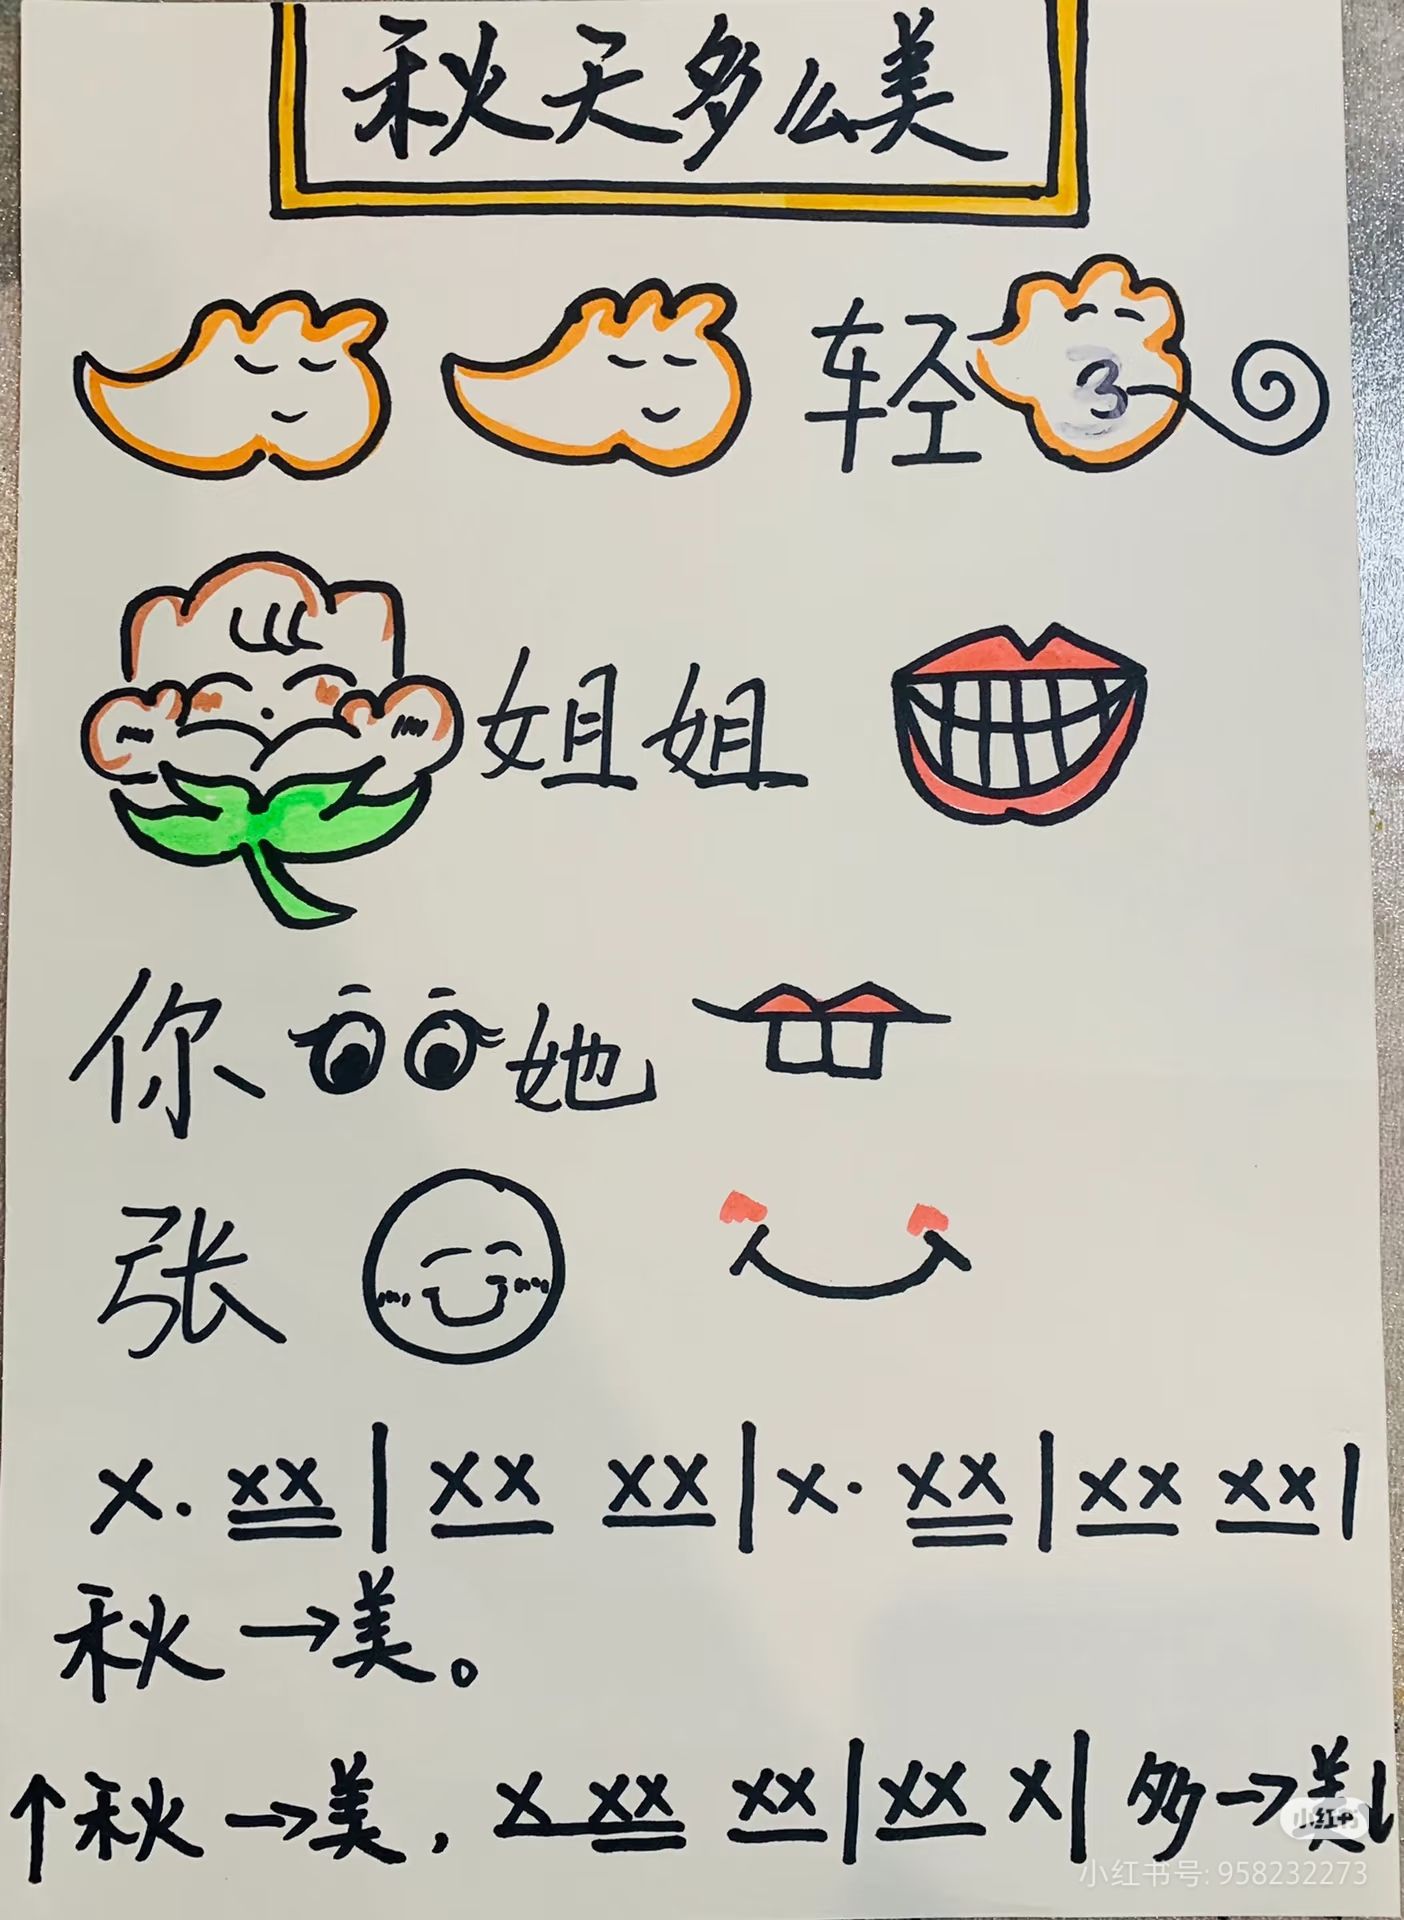 秋天多么美
轻 3
姐姐
你 她
张
x. xx | xx xx | x. xx | xx xx |
秋→美。
↑秋→美, x xx xx | xx x | 多→美↓
小红书
小红书号: 958232273